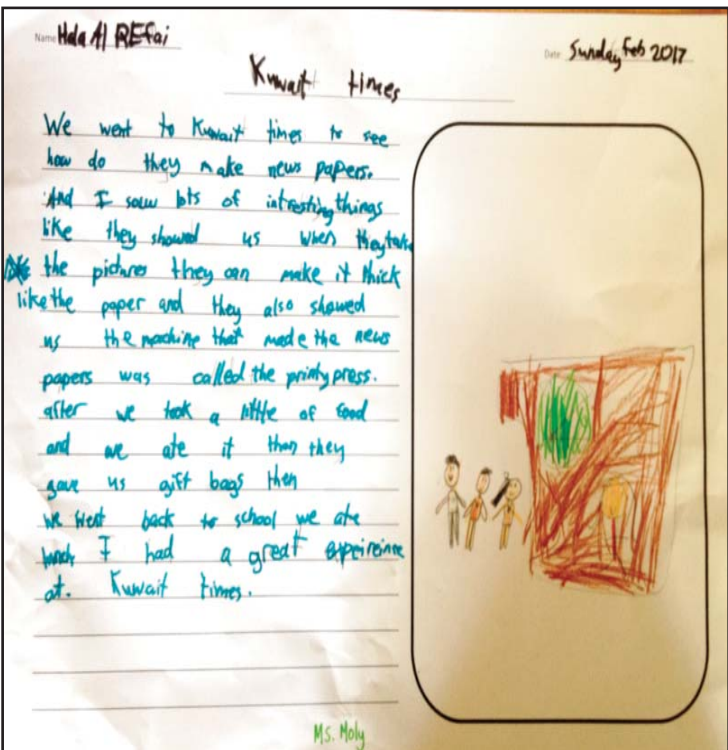 Name Hala Al REfai
Date Sunday Feb 2017
Kuwait times
We went to Kuwait times to see
how do they make news papers.
And I saw lots of intresting things
like they showed us when they take
the pictures they can make it thick
like the paper and they also showed
us the machine that made the news
papers was called the printy press.
after we took a little of food
and we ate it than they
gave us gift bags then
we went back to school we ate
lunch I had a great expeireince
at. Kuwait times.
Ms. Moly